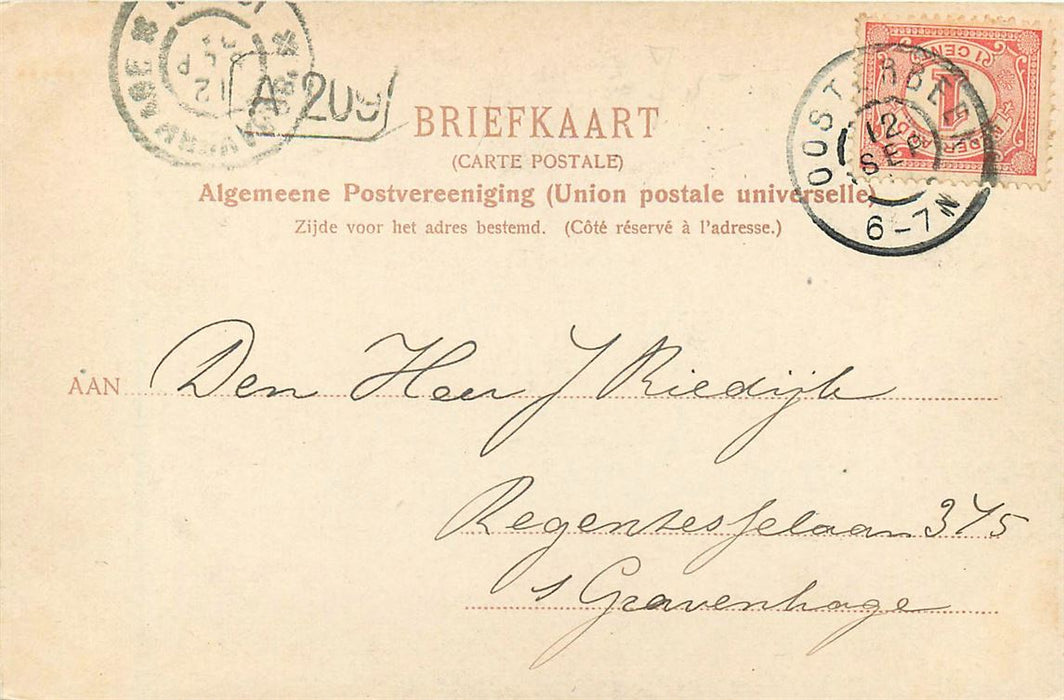 A 209
BRIEFKAART
(CARTE POSTALE)
Algemeene Postvereeniging (Union postale universelle)
Zijde voor het adres bestemd. (Côté réservé à l'adresse.)
1 CENT
1
NEDERLAND
OOSTERBEEK
12
SEP
6-7N
AAN Den Heer J Riedijk
Regentesselaan 345
s Gravenhage